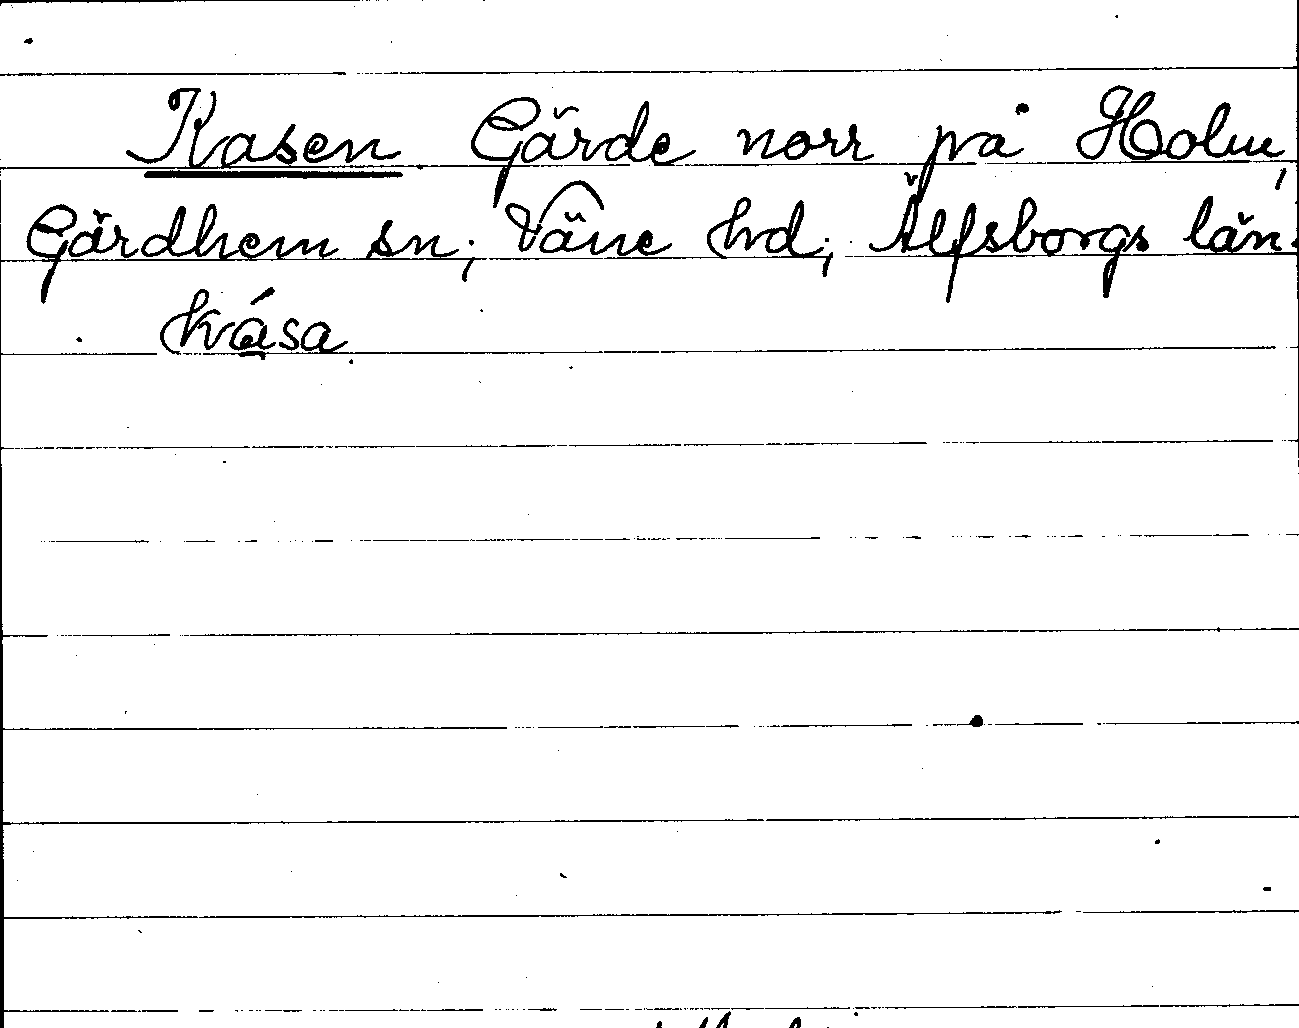 Kasen. Gärde norr på Holm,
Gärdhem sn; Väne hd; Älfsborgs län.
kása